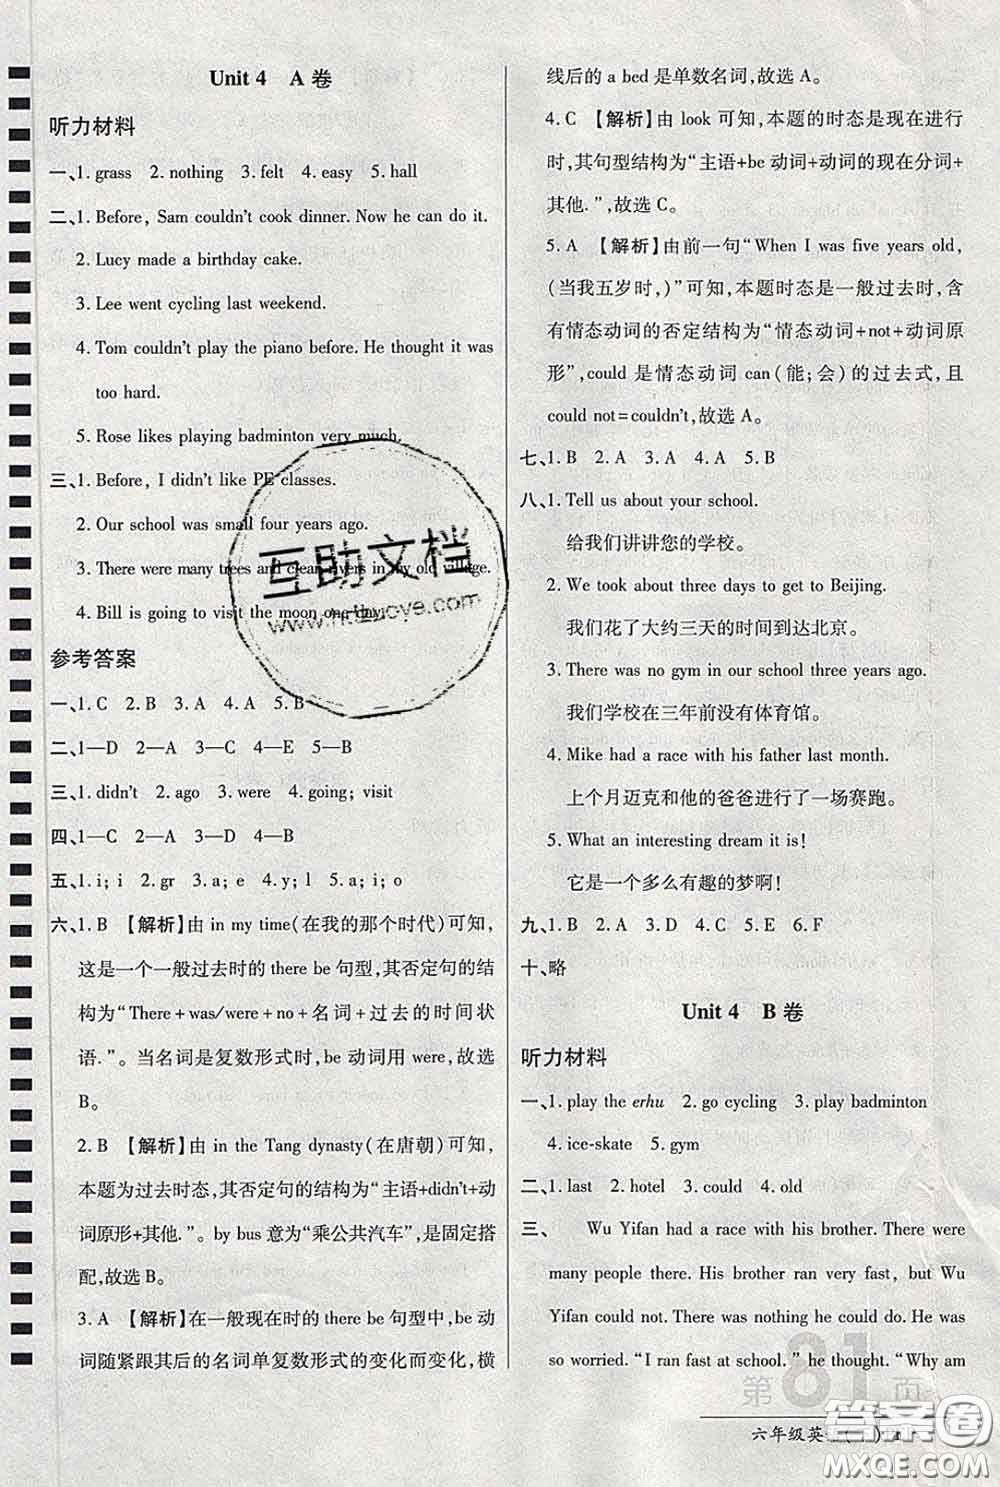 Unit 4 A 卷
听力材料
一、1. grass 2. nothing 3. felt 4. easy 5. hall
二、1. Before, Sam couldn't cook dinner. Now he can do it.
2. Lucy made a birthday cake.
3. Lee went cycling last weekend.
4. Tom couldn't play the piano before. He thought it was
too hard.
5. Rose likes playing badminton very much.
三、1. Before, I didn't like PE classes.
2. Our school was small four years ago.
3. There were many trees and clean rivers in my old village.
4. Bill is going to visit the moon one day.
参考答案
一、1. C 2. B 3. A 4. A 5. B
二、1—D 2—A 3—C 4—E 5—B
三、1. didn't 2. ago 3. were 4. going; visit
四、1—C 2—A 3—D 4—B
五、1. i; i 2. gr 3. a; e 4. y; l 5. a; i; o
六、1. B 【解析】由 in my time(在我的那个时代)可知,
这是一个一般过去时的 there be 句型,其否定句的结
构为“There+was/were+no+名词+过去的时间状
语.”。当名词是复数形式时,be 动词用 were,故选
B。
2. B 【解析】由 in the Tang dynasty(在唐朝)可知,
本题为过去时态,其否定句的结构为“主语+didn't+动
词原形+其他.”。by bus 意为“乘公共汽车”,是固定搭
配,故选 B。
3. A 【解析】在一般现在时的 there be 句型中,be 动
词随紧跟其后的名词单复数形式的变化而变化,横
线后的 a bed 是单数名词,故选 A。
4. C 【解析】由 look 可知,本题的时态是现在进行
时,其句型结构为“主语+be 动词+动词的现在分词+
其他.”,故选 C。
5. A 【解析】由前一句“When I was five years old,
(当我五岁时,)”可知,本题时态是一般过去时,含
有情态动词的否定结构为“情态动词+not+动词原
形”,could 是情态动词 can(能;会)的过去式,且
could not=couldn't,故选 A。
七、1. B 2. A 3. A 4. A 5. B
八、1. Tell us about your school.
给我们讲讲您的学校。
2. We took about three days to get to Beijing.
我们花了大约三天的时间到达北京。
3. There was no gym in our school three years ago.
我们学校在三年前没有体育馆。
4. Mike had a race with his father last month.
上个月迈克和他的爸爸进行了一场赛跑。
5. What an interesting dream it is!
它是一个多么有趣的梦啊!
九、1. B 2. A 3. D 4. C 5. E 6. F
十、略
Unit 4 B 卷
听力材料
一、1. play the erhu 2. go cycling 3. play badminton
4. ice-skate 5. gym
二、1. last 2. hotel 3. could 4. old
三、 Wu Yifan had a race with his brother. There were
many people there. His brother ran very fast, but Wu
Yifan could not. There was nothing he could do. He was
so worried. “I ran fast at school.” he thought. “Why am
第 81 页
六年级英
互助文档
答案圈
MXQE.COM